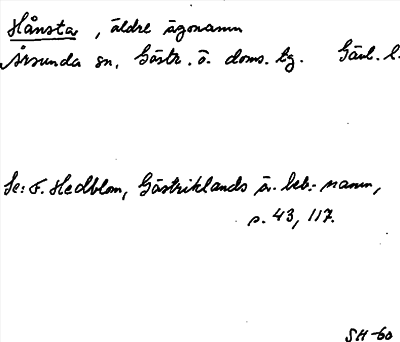 Hånsta, äldre ägonamn
Årsunda sn, Gästr. ö. doms. tg. Gävl. l.
Se: F. Hedblom, Gästriklands ä. beb.-namn,
s. 43, 117.
SH-60